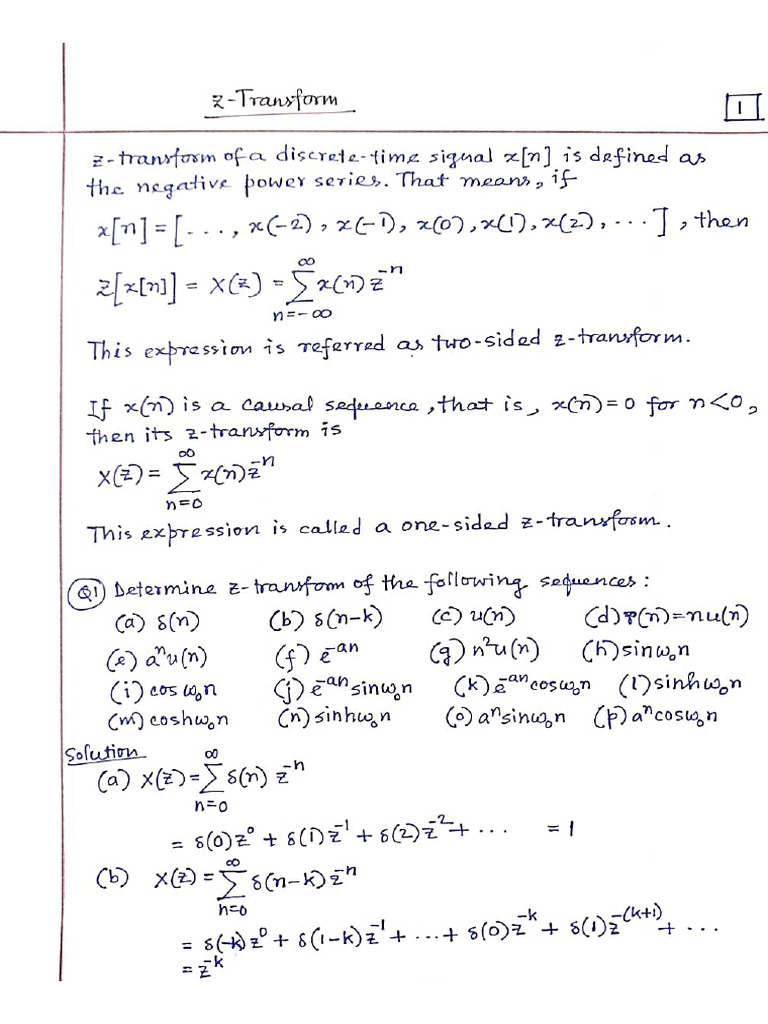 z-Transform
1
z-transform of a discrete-time signal x[n] is defined as
the negative power series. That means, if
x[n] = [ ..., x(-2), x(-1), x(0), x(1), x(2), ... ], then
Z[x[n]] = X(z) = ∑_{n=-∞}^{∞} x(n) z^{-n}
This expression is referred as two-sided z-transform.
If x(n) is a causal sequence, that is, x(n)=0 for n<0,
then its z-transform is
X(z) = ∑_{n=0}^{∞} x(n) z^{-n}
This expression is called a one-sided z-transform.
Q1 Determine z-transform of the following sequences:
(a) δ(n) (b) δ(n-k) (c) u(n) (d) r(n)=nu(n)
(e) a^n u(n) (f) e^{-an} (g) n^2 u(n) (h) sinω₀n
(i) cosω₀n (j) e^{-an} sinω₀n (k) e^{-an} cosω₀n (l) sinhω₀n
(m) coshω₀n (n) sinhω₀n (o) a^n sinω₀n (p) a^n cosω₀n
Solution
(a) X(z) = ∑_{n=0}^{∞} δ(n) z^{-n}
= δ(0)z^0 + δ(1)z^{-1} + δ(2)z^{-2} + ... = 1
(b) X(z) = ∑_{n=0}^{∞} δ(n-k) z^{-n}
= δ(-k)z^0 + δ(1-k)z^{-1} + ... + δ(0)z^{-k} + δ(1)z^{-(k+1)} + ...
= z^{-k}